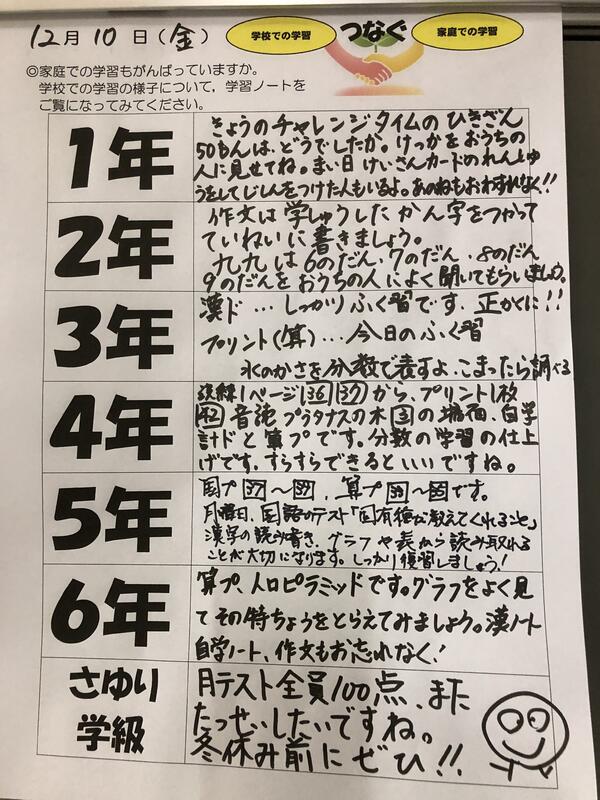 12月10日(金)
学校での学習
つなぐ
家庭での学習
◎家庭での学習もがんばっていますか。
学校での学習の様子について,学習ノートを
ご覧になってみてください。
1年
きょうのチャレンジタイムのひきざん
50もんは、どうでしたか。けっかをおうちの
人に見せてね。まい日けいさんカードのれんしゅ
うをしてじしんをつけた人もいるよ。あのねもおわすれなく!!
2年
作文は学しゅうしたかん字をつかって
ていねいに書きましょう。
九九は6のだん・7のだん・8のだん
9のだんをおうちの人によく聞いてもらいましょう。
3年
漢ド…しっかりふく習です。正かくに!!
プリント(算)…今日のふく習
水のかさを分数で表すよ。こまったら調べる
4年
1ページ136 137から、プリント1枚
42音読プラタナスの木3の場面、自学
計ドと算プです。分数の学習の仕上
げです。すらすらできるといいですね。
5年
国プ37～39、算プ です。
月曜日、国語のテスト「固有種が教えてくれること」
漢字の読み書き、グラフや表から読み取れる
ことが大切になります。しっかり復習しましょう!
6年
算プ、人口ピラミッドです。グラフをよく見
てその特ちょうをとらえてみましょう。漢ノート
自学ノート、作文もお忘れなく!
さゆり
学級
月テスト全員100点、また
たっせいしたいですね。
冬休み前にぜひ!!